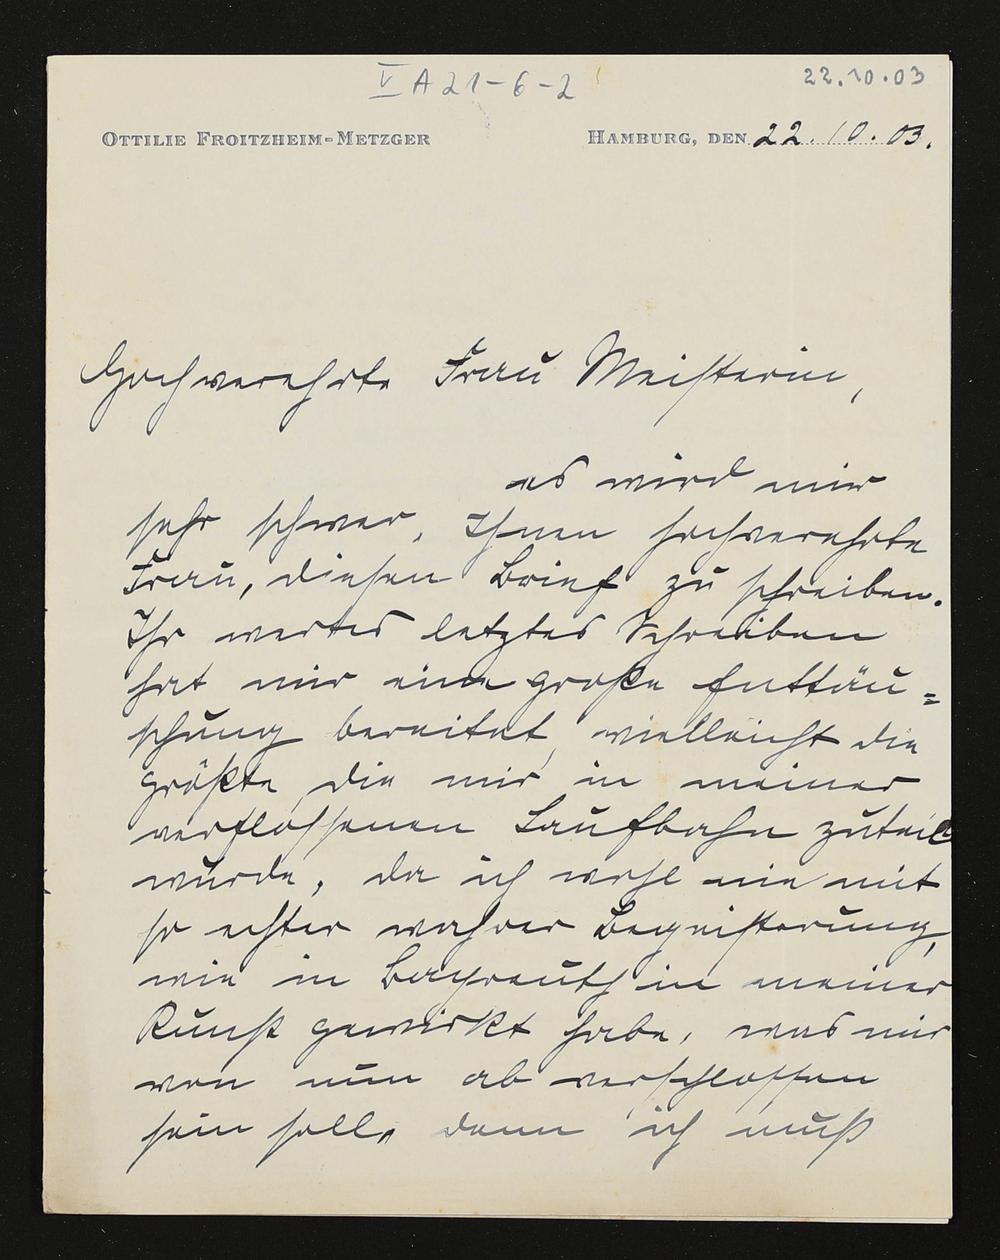 V A 21-6-2
22.10.03
OTTILIE FROITZHEIM-METZGER
HAMBURG, DEN 22.10.03.
Hochverehrte Frau Meisterin,
es wird mir
sehr schwer, Ihnen hochverehrte
Frau, diesen Brief zu schreiben.
Ihr wertes letztes Schreiben
hat mir eine große Enttäu=
schung bereitet, vielleicht die
größte, die mir in meiner
verflossenen Laufbahn zuteil
wurde, da ich wohl nie mit
so echter wahrer Begeisterung,
wie in Bayreuth in meiner
Kunst gewirkt habe, was mir
von nun ab verschlossen
sein soll, denn ich muß